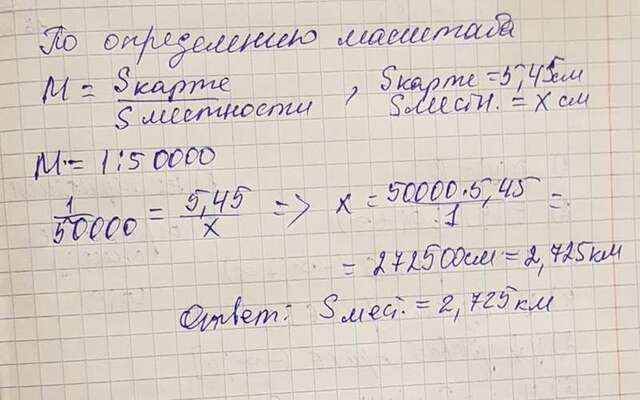 По определению масштаба
М = Sкарте / Sместности , Sкарте = 5,45см
Sместн. = х см
М = 1:50000
1/50000 = 5,45/х => х = 50000·5,45/1 =
= 272500см = 2,725км
Ответ: Sмест. = 2,725км